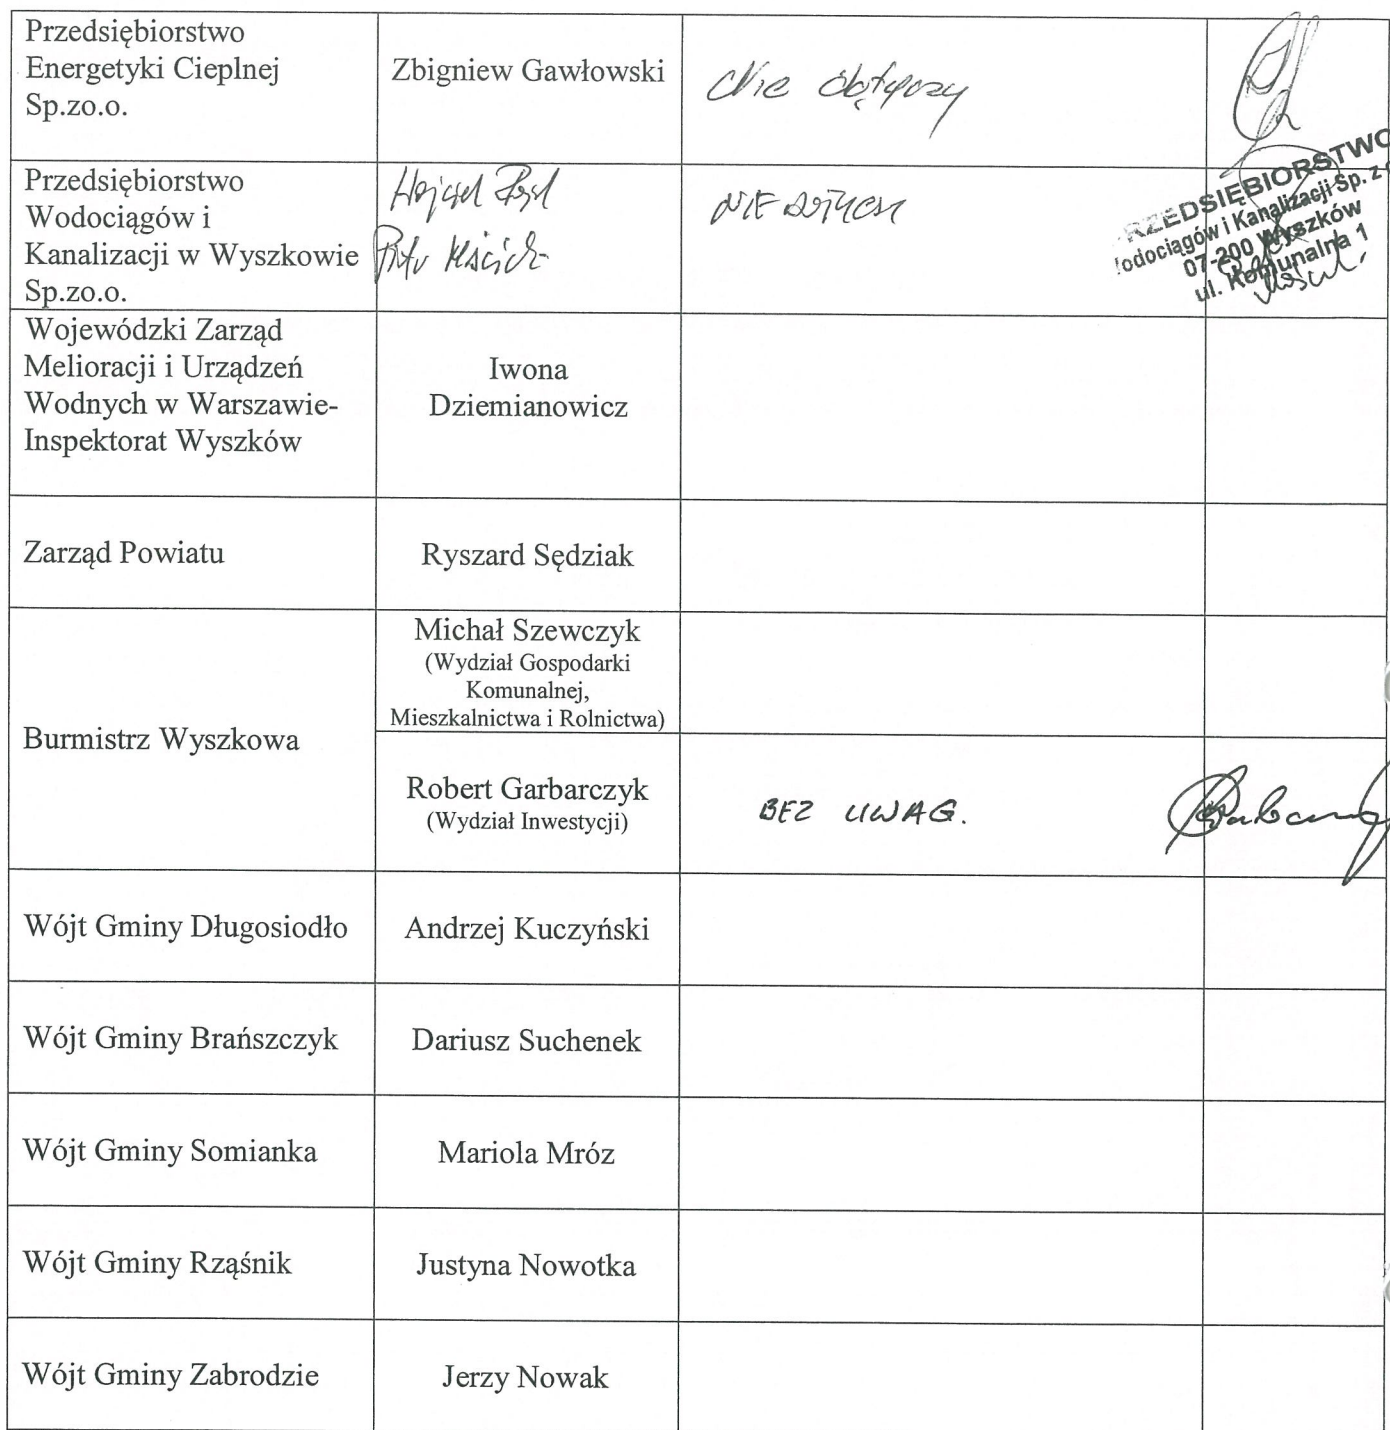 Przedsiębiorstwo
Energetyki Cieplnej
Sp.zo.o.
Zbigniew Gawłowski
Nie dotyczy
Przedsiębiorstwo
Wodociągów i
Kanalizacji w Wyszkowie
Sp.zo.o.
NIE DOTYCZY
RZEDSIĘBIORSTWO
odociągów i Kanalizacji Sp. z
07-200 Wyszków
ul. Komunalna 1
Wojewódzki Zarząd
Melioracji i Urządzeń
Wodnych w Warszawie-
Inspektorat Wyszków
Iwona
Dziemianowicz
Zarząd Powiatu
Ryszard Sędziak
Burmistrz Wyszkowa
Michał Szewczyk
(Wydział Gospodarki
Komunalnej,
Mieszkalnictwa i Rolnictwa)
Robert Garbarczyk
(Wydział Inwestycji)
BEZ UWAG.
Wójt Gminy Długosiodło
Andrzej Kuczyński
Wójt Gminy Brańszczyk
Dariusz Suchenek
Wójt Gminy Somianka
Mariola Mróz
Wójt Gminy Rząśnik
Justyna Nowotka
Wójt Gminy Zabrodzie
Jerzy Nowak